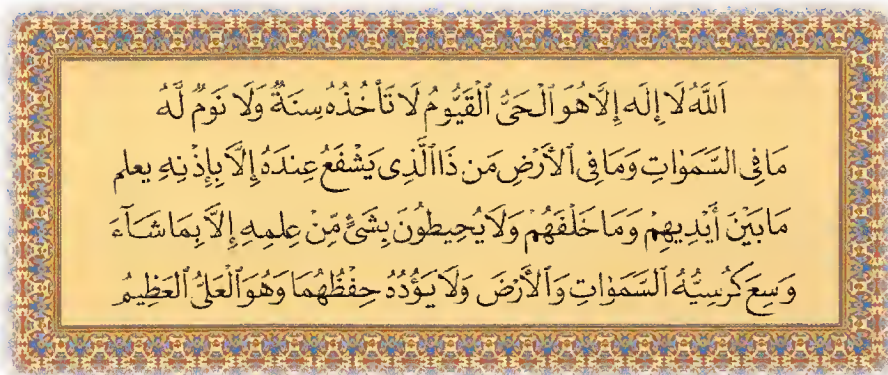 اَللَّهُ لَا إِلَٰهَ إِلَّا هُوَ ٱلْحَىُّ ٱلْقَيُّومُ لَا تَأْخُذُهُ سِنَةٌ وَلَا نَوْمٌ لَّهُ
مَا فِى السَّمَوَٰتِ وَمَا فِى ٱلْأَرْضِ مَن ذَا الَّذِى يَشْفَعُ عِندَهُ إِلَّا بِإِذْنِهِ يعلم
مَا بَيْنَ أَيْدِيهِمْ وَمَا خَلْفَهُمْ وَلَا يُحِيطُونَ بِشَىْءٍ مِّنْ عِلْمِهِ إِلَّا بِمَا شَآءَ
وَسِعَ كُرْسِيُّهُ ٱلسَّمَوَٰتِ وَٱلْأَرْضَ وَلَا يَؤُدُهُ حِفْظُهُمَا وَهُوَ ٱلْعَلِىُّ ٱلْعَظِيمُ